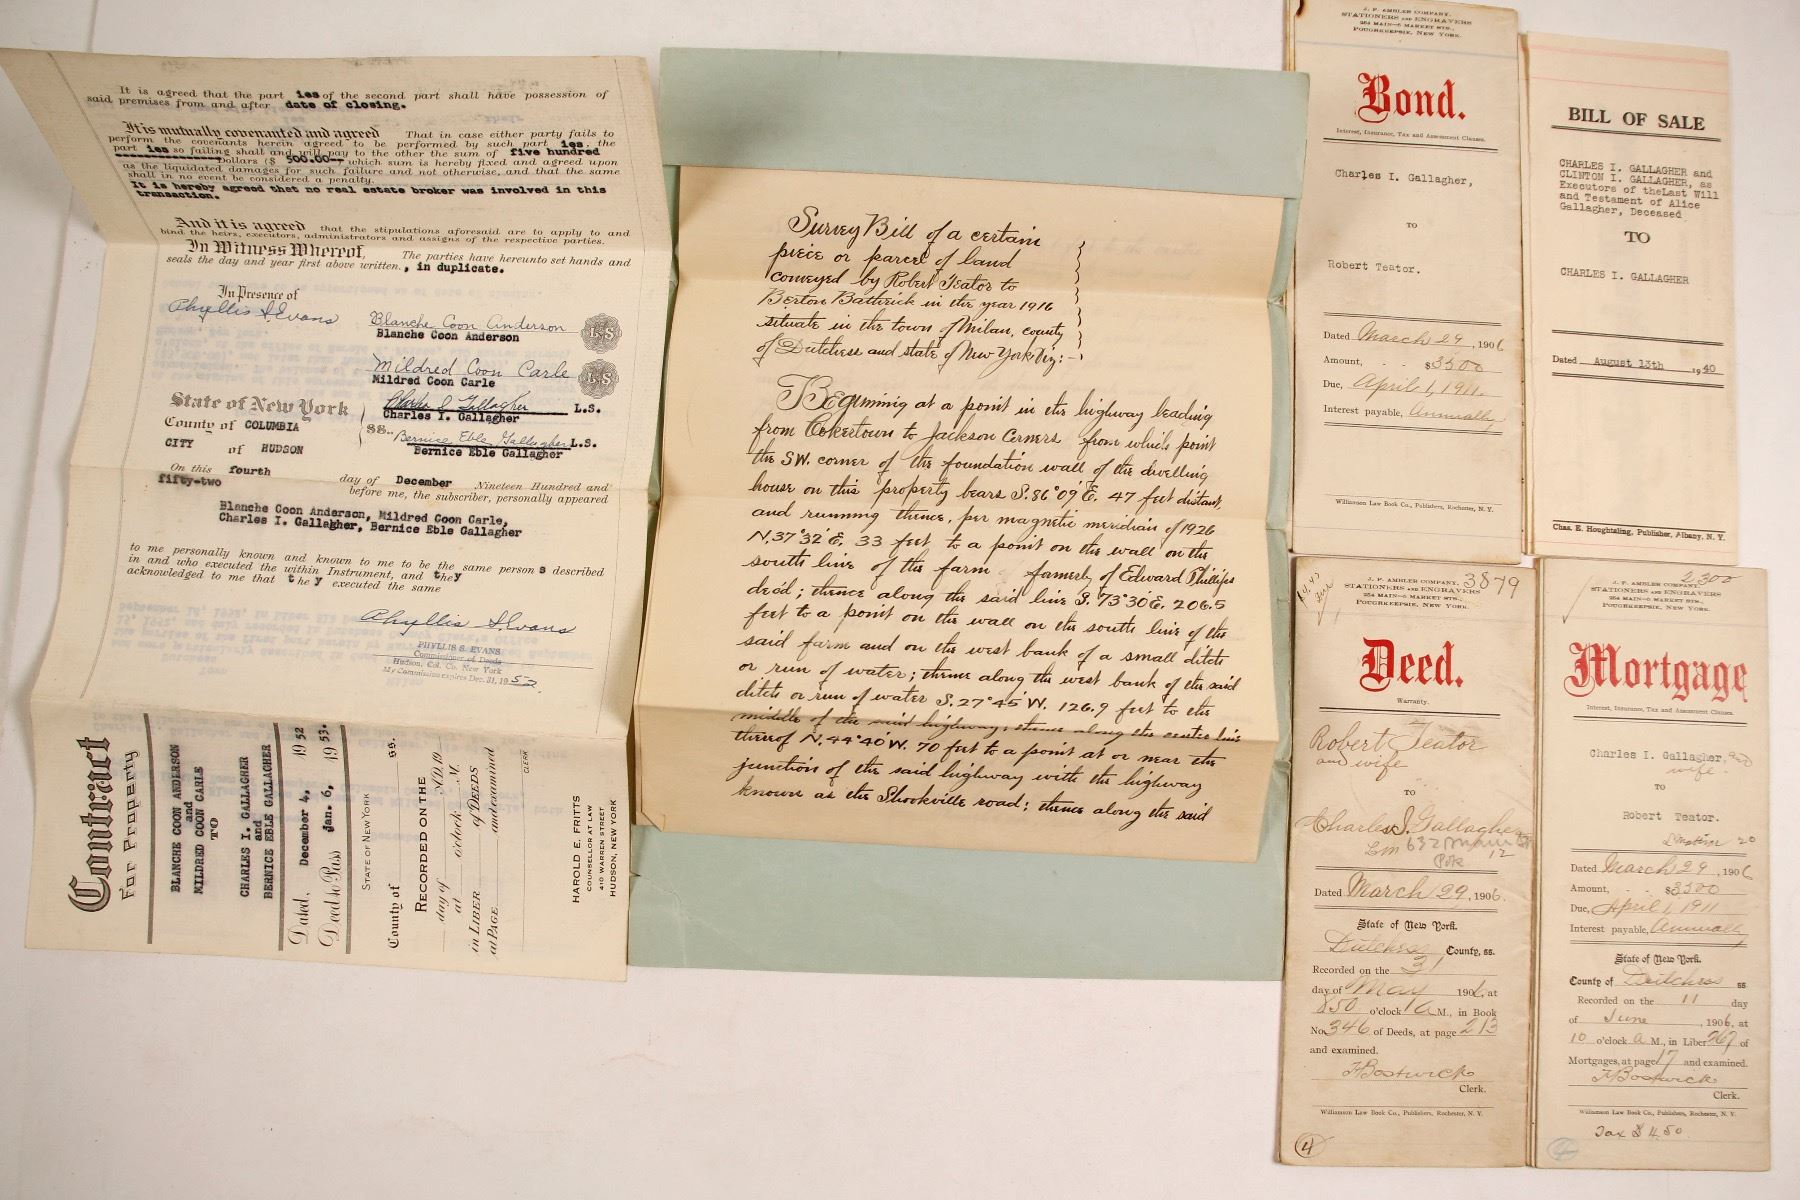 It is agreed that the part ies of the second part shall have possession of
said premises from and after date of closing.
It is mutually covenanted and agreed That in case either party fails to
perform the covenants herein agreed to be performed by such part ies, the
part ies so failing shall and will pay to the other the sum of five hundred
Dollars ($ 500.00-- which sum is hereby fixed and agreed upon
as the liquidated damages for such failure and not otherwise, and that the same
shall in no event be considered a penalty.
It is hereby agreed that no real estate broker was involved in this
transaction.
And it is agreed that the stipulations aforesaid are to apply to and
bind the heirs, executors, administrators and assigns of the respective parties.
In Witness Whereof, The parties have hereunto set hands and
seals the day and year first above written., in duplicate.
In Presence of
Phyllis S. Evans
Blanche Coon Anderson L S
Blanche Coon Anderson
Mildred Coon Carle L S
Mildred Coon Carle
Charles I. Gallagher L.S.
Charles I. Gallagher
Bernice Eble Gallagher L.S.
Bernice Eble Gallagher
State of New York
County of COLUMBIA
CITY of HUDSON
ss.
On this fourth day of December Nineteen Hundred and
fifty-two before me, the subscriber, personally appeared
Blanche Coon Anderson, Mildred Coon Carle,
Charles I. Gallagher, Bernice Eble Gallagher
to me personally known and known to me to be the same person s described
in and who executed the within Instrument, and they
acknowledged to me that t he y executed the same
Phyllis S Evans
PHYLLIS S. EVANS
Commissioner of Deeds
Hudson, Col. Co. New York
My Commission expires Dec. 31, 1952.
Contract
For Property
BLANCHE COON ANDERSON
and
MILDRED COON CARLE
TO
CHARLES I. GALLAGHER
and
BERNICE EBLE GALLAGHER
Dated, December 4, 1952
Deed to Pass Jan. 6, 1953.
STATE OF NEW YORK
County of ss.
RECORDED ON THE
day of A.D. 19
at o'clock M.
in LIBER of DEEDS
at PAGE and examined
CLERK
HAROLD E. FRITTS
COUNSELLOR AT LAW
410 WARREN STREET
HUDSON, NEW YORK
Survey Bill of a certain
piece or parcel of land
conveyed by Robert Teator to
Berton Bathrick in the year 1916
situate in the town of Milan, county
of Dutchess and state of New York Viz:-
Beginning at a point in the highway leading
from Cokertown to Jackson Corners from which point
the SW. corner of the foundation wall of the dwelling
house on this property bears S. 86°09'E. 47 feet distant,
and running thence, per magnetic meridian of 1926
N. 37°32'E. 33 feet to a point on the wall on the
south line of the farm formerly of Edward Phillips
dead; thence along the said line S. 73°30'E. 206.5
feet to a point on the wall on the south line of the
said farm and on the west bank of a small ditch
or run of water; thence along the west bank of the said
ditch or run of water S. 27°45'W. 126.9 feet to the
middle of the said highway; thence along the center line
thereof N. 44°40'W. 70 feet to a point at or near the
junction of the said highway with the highway
known as the Shookville road; thence along the said
J. P. AMBLER COMPANY,
STATIONERS AND ENGRAVERS
254 MAIN—5 MARKET STS.,
POUGHKEEPSIE, NEW YORK.
Bond.
Interest, Insurance, Tax and Assessment Clauses.
Charles I. Gallagher,
TO
Robert Teator.
Dated March 29, 1906
Amount, $3500
Due, April 1, 1911.
Interest payable, Annually
Williamson Law Book Co., Publishers, Rochester, N. Y.
BILL OF SALE
CHARLES I. GALLAGHER and
CLINTON I. GALLAGHER, as
Executors of theLast Will
and Testament of Alice
Gallagher, Deceased
TO
CHARLES I. GALLAGHER
Dated August 13th 1940
Chas. E. Houghtaling, Publisher, Albany, N. Y.
J. P. AMBLER COMPANY, 3879
STATIONERS AND ENGRAVERS
254 MAIN—5 MARKET STS.,
POUGHKEEPSIE, NEW YORK.
Deed.
Warranty.
Robert Teator
and wife
TO
Charles I. Gallagher
632 Main
Pok 12
Dated March 29, 1906.
State of New York.
Dutchess County, ss.
Recorded on the 31
day of May 1906, at
850 o'clock A M., in Book
No 346 of Deeds, at page 213
and examined.
F Bostwick
Clerk.
Williamson Law Book Co., Publishers, Rochester, N. Y.
4
2300
J. P. AMBLER COMPANY,
STATIONERS AND ENGRAVERS
254 MAIN—5 MARKET STS.,
POUGHKEEPSIE, NEW YORK.
Mortgage
Interest, Insurance, Tax and Assessment Clauses.
Charles I. Gallagher, and
wife.
TO
Robert Teator.
20
Dated March 29, 1906
Amount, $3500
Due, April 1, 1911
Interest payable, Annually
State of New York.
County of Dutchess ss
Recorded on the 11 day
of June, 1906, at
10 o'clock A M., in Liber 267 of
Mortgages, at page 17 and examined.
F Bostwick
Clerk.
Williamson Law Book Co., Publishers, Rochester, N. Y.
Tax $ 4.50.
4